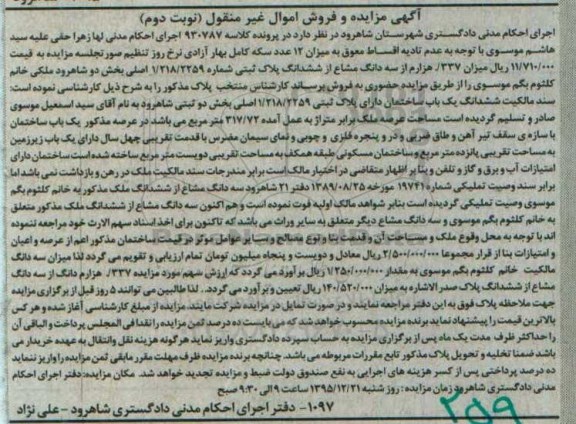 آگهی مزایده و فروش اموال غیر منقول (نوبت دوم)
اجرای احکام مدنی دادگستری شهرستان شاهرود در نظر دارد در پرونده کلاسه ۹۳۰۷۸۷ اجرای احکام مدنی لها زهرا حقی علیه سید
هاشم موسوی با توجه به عدم تادیه اقساط معوق به میزان ۱۲ عدد سکه کامل بهار آزادی نرخ روز تنظیم صورتجلسه مزایده به قیمت
۱۱/۷۱۰/۰۰۰ ریال میزان ۳۳۷/. هزارم از سه دانگ مشاع از ششدانگ پلاک ثبتی شماره ۱/۲۱۸/۲۲۵۹ اصلی بخش دو شاهرود ملکی خانم
کلثوم بگم موسوی را از طریق مزایده حضوری به فروش برساند کارشناس منتخب پلاک مذکور را به شرح ذیل کارشناسی نموده است:
سند مالکیت ششدانگ یک باب ساختمان دارای پلاک ثبتی ۱/۲۱۸/۲۲۵۹ اصلی بخش دو ثبتی شاهرود به نام آقای سید اسمعیل موسوی
صادر و تسلیم گردیده است مساحت عرصه ملک برابر متراژ به عمل آمده ۳۱۷/۷۲ متر مربع می باشد. در عرصه مذکور یک باب ساختمان
با سازه ی سقف تیر آهن و طاق ضربی و در و پنجره فلزی و چوبی و نمای سیمان مضرس با قدمت تقریبی چهل سال دارای یک باب زیرزمین
به مساحت تقریبی پانزده متر مربع و ساختمان مسکونی طبقه همکف به مساحت تقریبی دویست متر مربع ساخته شده است ساختمان دارای
امتیازات آب و برق و گاز و تلفن و بنا بر اظهار متقاضی در اختیار مالک است برابر مندرجات سند مالکیت ملک در رهن و بازداشت نمی باشد اما
برابر سند وصیت تملیکی شماره ۱۹۷۴۱ مورخه ۱۳۸۹/۰۸/۲۵ دفتر ۲۱ شاهرود سه دانگ مشاع از ششدانگ ملک مذکور به خانم کلثوم بگم
موسوی وصیت تملیکی گردیده است بنابر شواهد مالک اولیه فوت نموده است و هم اکنون سه دانگ مشاع از ششدانگ ملک مذکور متعلق
به خانم کلثوم بگم موسوی و سه دانگ مشاع دیگر متعلق به سایر وراث می باشد که تاکنون برای اخذ اسناد سهم الارث خود مراجعه ننموده
اند با توجه به محل وقوع ملک و مساحت آن و قدمت بنا و نوع مصالح و سایر عوامل موثر در قیمت ساختمان مذکور اعم از عرصه و اعیان
و امتیازات بنا از قرار مجموعا ۲/۵۰۰/۰۰۰/۰۰۰ ریال معادل و دویست و پنجاه میلیون تومان تمام ارزیابی و تقویم می گردد لذا میزان سه دانگ
مالکیت خانم کلثوم بگم موسوی به مقدار ۱/۲۵۰/۰۰۰/۰۰۰ ریال برآورد می گردد که ارزش سهم مورد مزایده ۳۳۷/. هزارم دانگ از سه دانگ
مشاع از ششدانگ پلاک صدر الاشاره به میزان ۱۴۰/۵۲۰/۰۰۰ ریال تعیین و برآورد می گردد.. لذا طالبین می توانند ۵ روز قبل از برگزاری مزایده
جهت ملاحظه پلاک فوق به این دفتر مراجعه نمایند و در صورت تمایل در مزایده شرکت نمایند. مزایده از مبلغ کارشناسی آغاز شده و هر کس
بالاترین قیمت را پیشنهاد نماید برنده مزایده محسوب خواهد شد که می بایست ده درصد ثمن مزایده را نقدا فی المجلس پرداخت و الباقی آن
را حداکثر ظرف مدت یک ماه پس از برگزاری مزایده به حساب سپرده دادگستری واریز نماید هرگونه هزینه نقل وانتقال به عهده خریدار می
باشد ضمنا تخلیه و تحویل پلاک مذکور تابع مقررات مربوطه می باشد. چنانچه برنده مزایده ظرف مهلت مقرر مابقی ثمن مزایده را واریز ننماید
ده درصد پرداختی پس از کسر هزینه های اجرایی به نفع صندوق دولت ضبط و مزایده تجدید خواهد شد. مکان مزایده: دفتر اجرای احکام
مدنی دادگستری شاهرود زمان مزایده : روز شنبه ۱۳۹۵/۱۲/۲۱ ساعت ۹ الی ۹:۳۰ صبح
۱۰۹۷- دفتر اجرای احکام مدنی دادگستری شاهرود - علی نژاد
۲۵۹